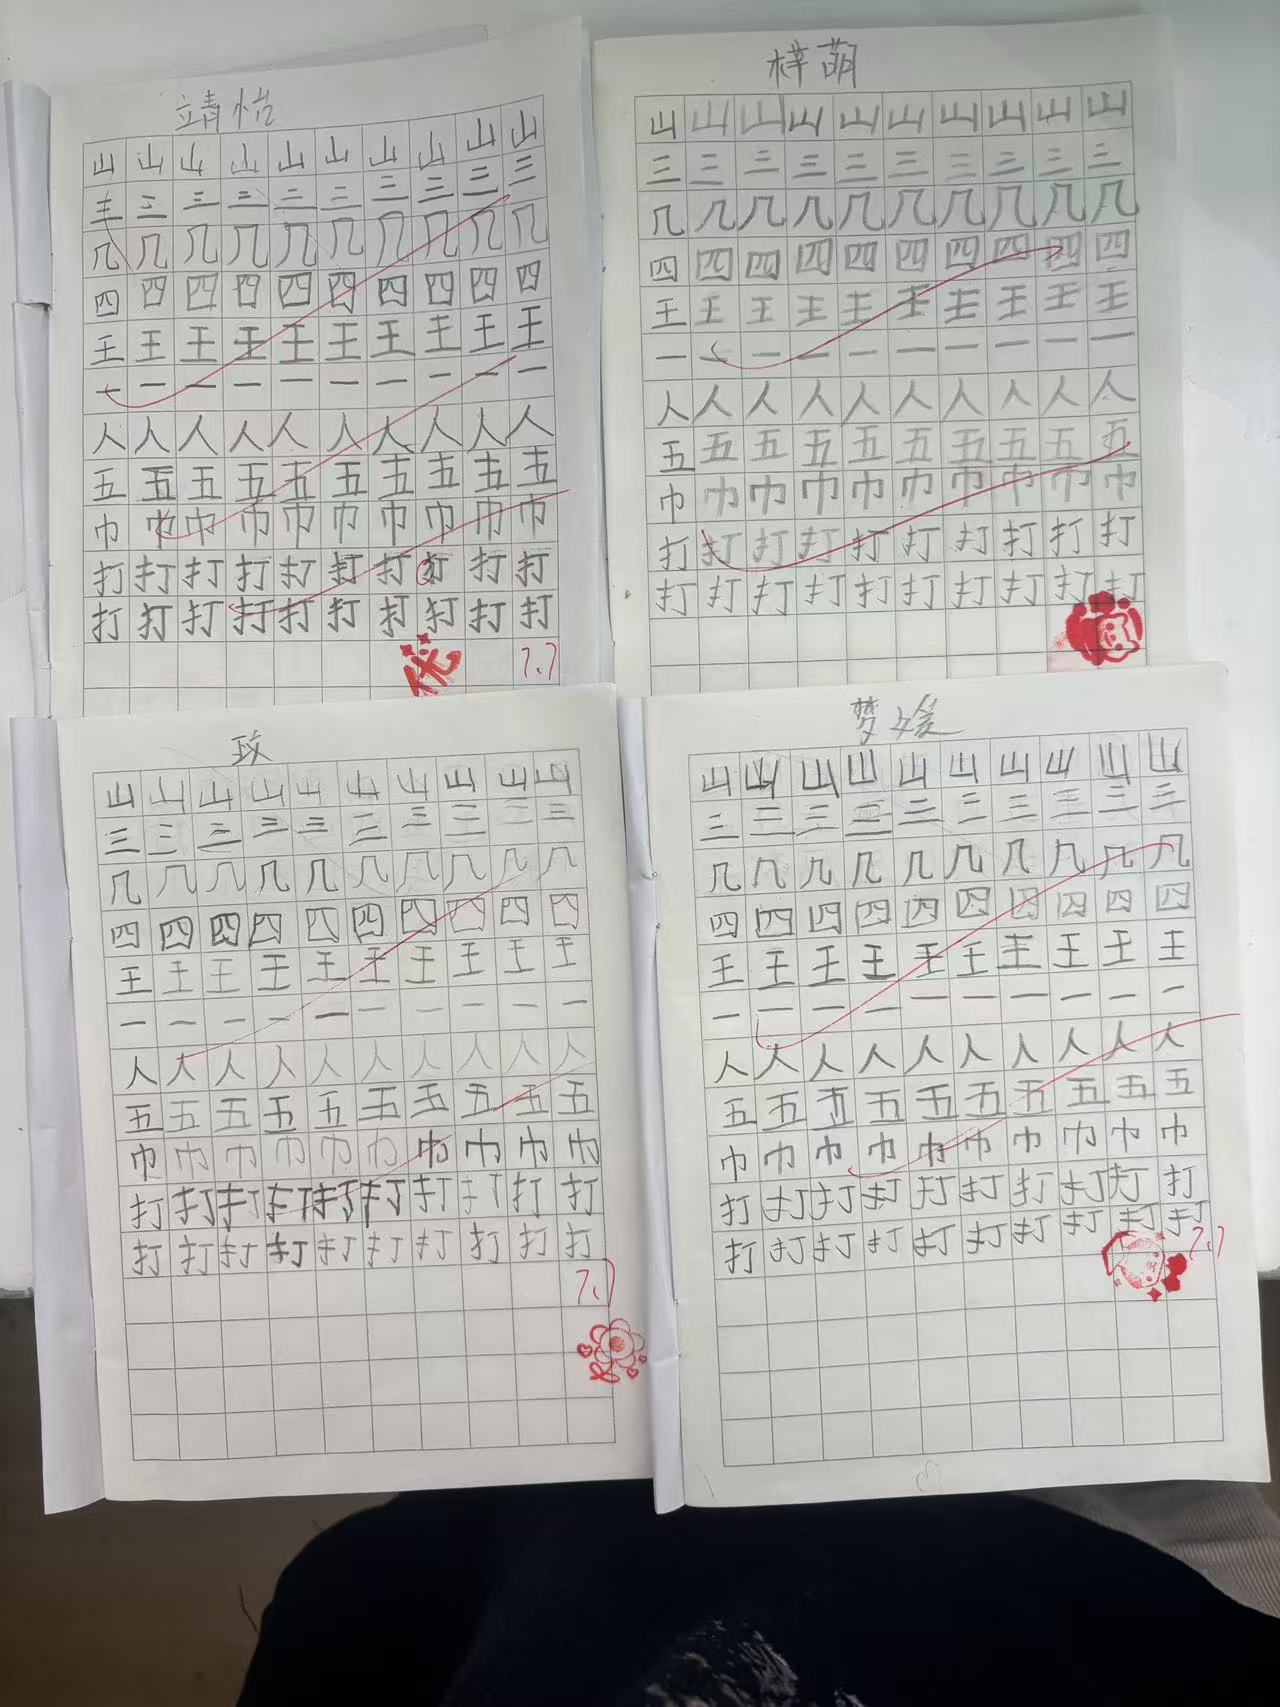 靖怡
山山山山山山山山山山
三三三三三三三三三三
几几几几几几几几几几
四四四四四四四四四四
王王王王王王王王王王
一一一一一一一一一一
人人人人人人人人人人
五五五五五五五五五五
巾巾巾巾巾巾巾巾巾巾
打打打打打打打打打打
打打打打打打打打打打
优
7.7
梓萌
山山山山山山山山山山
三三三三三三三三三三
几几几几几几几几几几
四四四四四四四四四四
王王王王王王王王王王
一一一一一一一一一一
人人人人人人人人人人
五五五五五五五五五五
巾巾巾巾巾巾巾巾巾巾
打打打打打打打打打打
打打打打打打打打打打
玫
山山山山山山山山山山
三三三三三三三三三三
几几几几几几几几几几
四四四四四四四四四四
王王王王王王王王王王
一一一一一一一一一一
人人人人人人人人人人
五五五五五五五五五五
巾巾巾巾巾巾巾巾巾巾
打打打打打打打打打打
打打打打打打打打打打
7.7
梦媛
山山山山山山山山山山
三三三三三三三三三三
几几几几几几几几几几
四四四四四四四四四四
王王王王王王王王王王
一一一一一一一一一一
人人人人人人人人人人
五五五五五五五五五五
巾巾巾巾巾巾巾巾巾巾
打打打打打打打打打打
打打打打打打打打打打
7.7